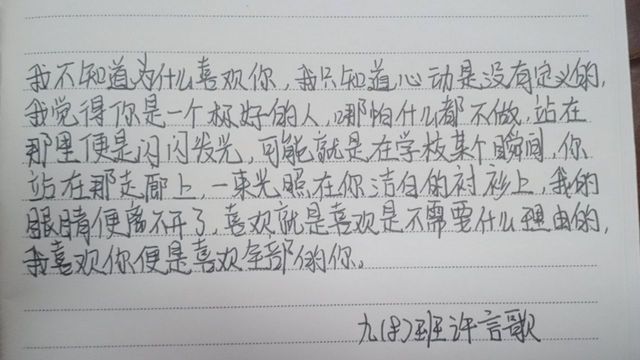 我不知道为什么喜欢你，我只知道心动是没有定义的，
我觉得你是一个极好的人，哪怕什么都不做，站在
那里便是闪闪发光，可能就是在学校某个瞬间，你
站在那走廊上，一束光照在你洁白的衬衫上，我的
眼睛便离不开了，喜欢就是喜欢是不需要什么理由的，
我喜欢你便是喜欢全部的你。
九(8)班许言歌